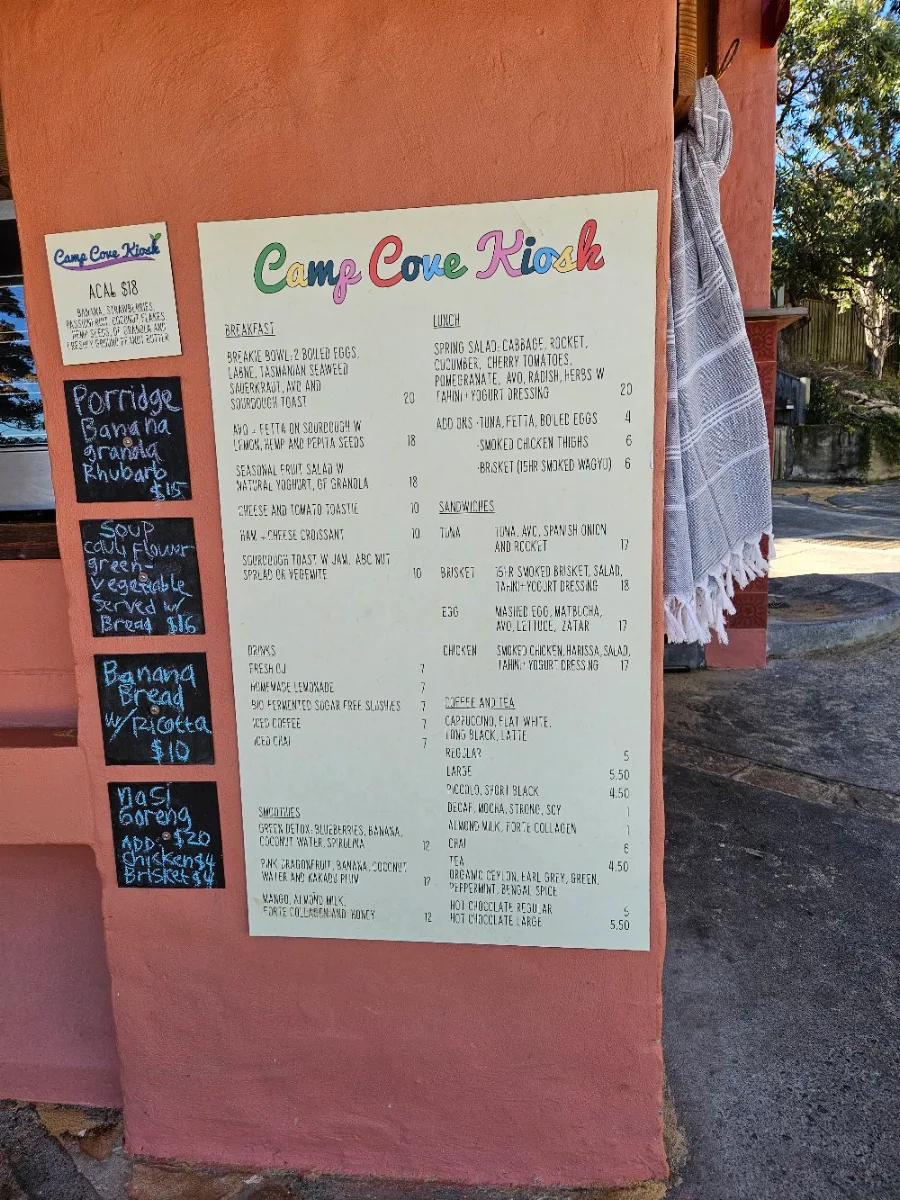 Camp Cove Kiosk
ACAI $18
BANANA, STRAWBERRIES,
PASSIONFRUIT, COCONUT FLAKES
HEMP SEEDS, GF GRANOLA AND
FRESHLY GROUND PEANUT BUTTER
Porridge
Banana
granola
Rhubarb
$15
Soup
cauliflower
green-
vegetable
Served w/
Bread $16
Banana
Bread
w/Ricotta
$10
nasi
Goreng
$20
ADD:
chicken $4
Brisket $4
Camp Cove Kiosk
BREAKFAST
BREAKIE BOWL: 2 BOILED EGGS,
LABNE, TASMANIAN SEAWEED
SAUERKRAUT, AVO AND
SOURDOUGH TOAST 20
AVO + FETTA ON SOURDOUGH W
LEMON, HEMP AND PEPITA SEEDS 18
SEASONAL FRUIT SALAD W
NATURAL YOGHURT, GF GRANOLA 18
CHEESE AND TOMATO TOASTIE 10
HAM + CHEESE CROISSANT 10
SOURDOUGH TOAST W JAM, ABC NUT
SPREAD OR VEGEMITE 10
DRINKS
FRESH OJ 7
HOMEMADE LEMONADE 7
BIO FERMENTED SUGAR FREE SLUSHIES 7
ICED COFFEE 7
ICED CHAI 7
SMOOTHIES
GREEN DETOX: BLUEBERRIES, BANANA,
COCONUT WATER, SPIRULINA 12
PINK DRAGONFRUIT, BANANA, COCONUT
WATER AND KAKADU PLUM 12
MANGO, ALMOND MILK,
FORTE COLLAGEN AND HONEY 12
LUNCH
SPRING SALAD: CABBAGE, ROCKET,
CUCUMBER, CHERRY TOMATOES,
POMEGRANATE, AVO, RADISH, HERBS W
TAHINI+ YOGURT DRESSING 20
ADD ONS -TUNA, FETTA, BOILED EGGS 4
-SMOKED CHICKEN THIGHS 6
-BRISKET (15HR SMOKED WAGYU) 6
SANDWICHES
TUNA TUNA, AVO, SPANISH ONION
AND ROCKET 17
BRISKET 15HR SMOKED BRISKET, SALAD,
TAHINI+ YOGURT DRESSING 18
EGG MASHED EGG, MATBUCHA,
AVO, LETTUCE, ZATAR 17
CHICKEN SMOKED CHICKEN, HARISSA, SALAD,
TAHINI+ YOGURT DRESSING 17
COFFEE AND TEA
CAPPUCCINO, FLAT WHITE,
LONG BLACK, LATTE
REGULAR 5
LARGE 5.50
PICCOLO, SHORT BLACK 4.50
DECAF, MOCHA, STRONG, SOY 1
ALMOND MILK, FORTE COLLAGEN 1
CHAI 6
TEA 4.50
ORGANIC CEYLON, EARL GREY, GREEN,
PEPPERMINT, BENGAL SPICE
HOT CHOCOLATE REGULAR 5
HOT CHOCOLATE LARGE 5.50